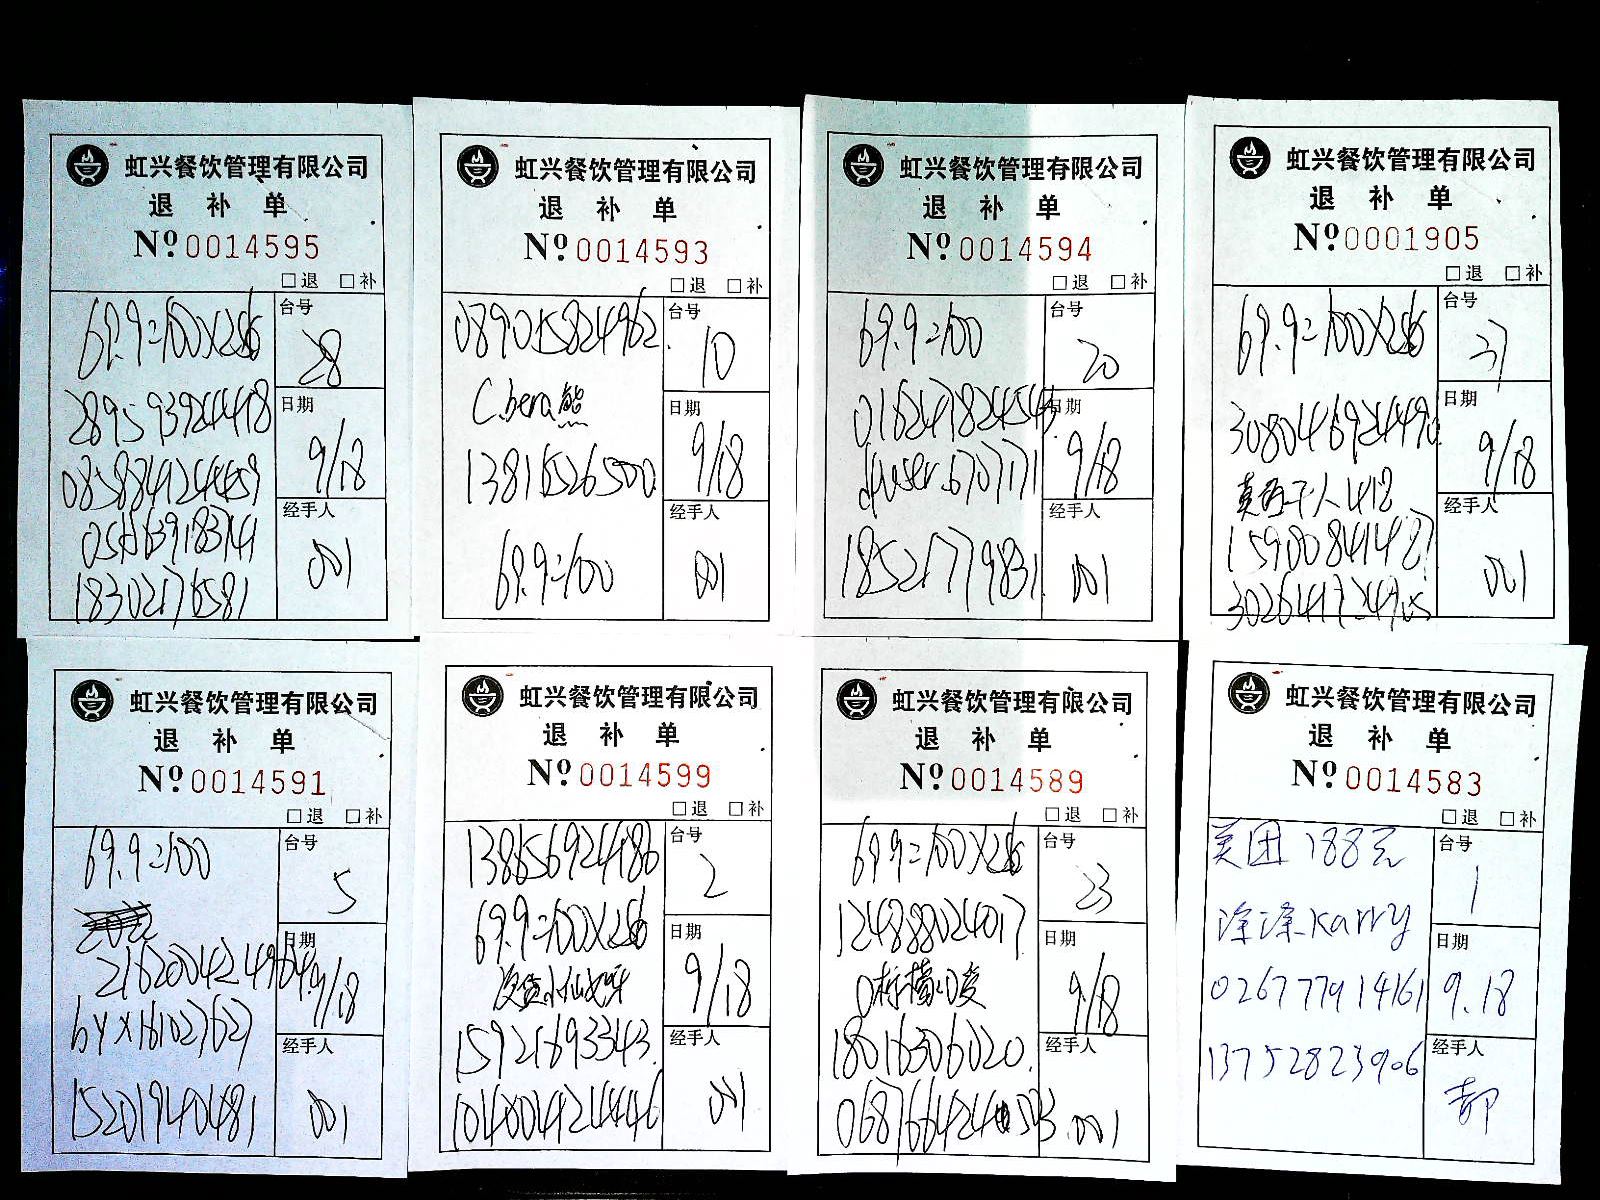 虹兴餐饮管理有限公司
退 补 单
Nº 0014595
□退 □补
69.9=100X2张
台号
28
2895939244418
日期
9/18
0858841244459
经手人
001
18302176581
虹兴餐饮管理有限公司
退 补 单
Nº 0014593
□退 □补
089015824962
台号
10
C.bera熊
日期
9/18
13815526500
经手人
001
69.9=100
虹兴餐饮管理有限公司
退 补 单
Nº 0014594
□退 □补
69.9=100
台号
20
日期
9/18
18521779831
经手人
001
虹兴餐饮管理有限公司
退 补 单
Nº 0001905
□退 □补
69.9=100X2张
台号
31
日期
9/18
15900841487
经手人
001
虹兴餐饮管理有限公司
退 补 单
Nº 0014591
□退 □补
69.9=100
台号
5
日期
9/18
15201940481
经手人
001
虹兴餐饮管理有限公司
退 补 单
Nº 0014599
□退 □补
138656924186
台号
2
69.9=100X2张
日期
9/18
15921693343
经手人
001
虹兴餐饮管理有限公司
退 补 单
Nº 0014589
□退 □补
69.9=100X2张
台号
23
124888024017
日期
9/18
18016306020
经手人
001
虹兴餐饮管理有限公司
退 补 单
Nº 0014583
□退 □补
美团 188元
台号
1
涂涂Karry
日期
9.18
026777914161
13752823906
经手人